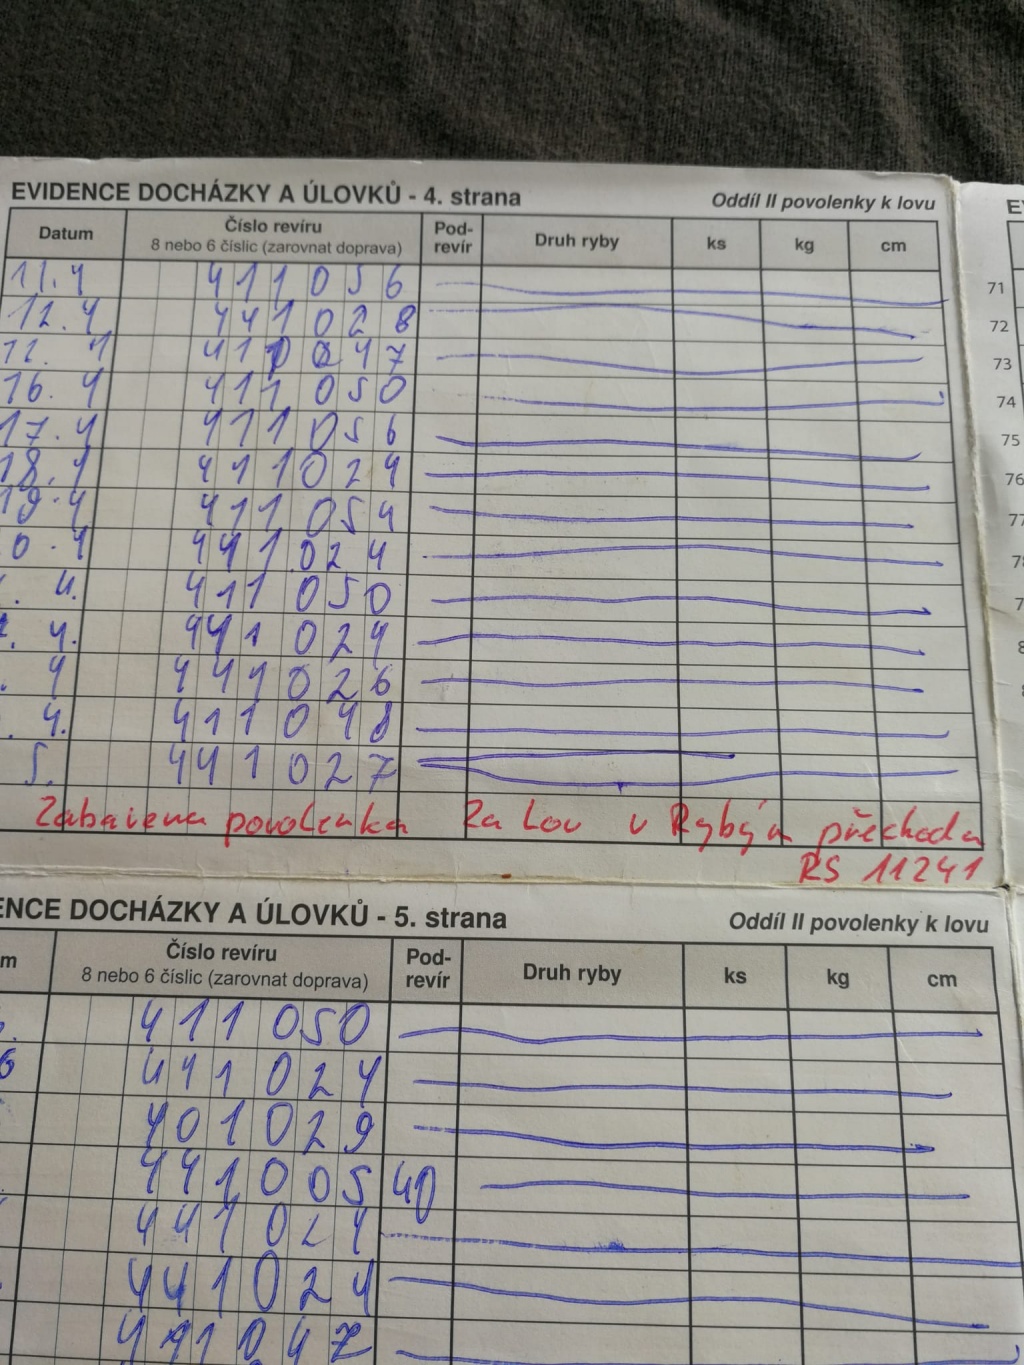 EVIDENCE DOCHÁZKY A ÚLOVKŮ - 4. strana Oddíl II povolenky k lovu
Datum Číslo revíru 8 nebo 6 číslic (zarovnat doprava) Pod-revír Druh ryby ks kg cm
11.4 411056 71
12.4 441028 72
73
16.4 411050 74
17.4 411056 75
18.4 411024 76
19.4 411054
0.4 441024
4. 411050
4. 441024
4 441026
4. 411048
5. 441027
Zabavena povolenka Za Lov v Rybým přechodu
RS 11241
ENCE DOCHÁZKY A ÚLOVKŮ - 5. strana Oddíl II povolenky k lovu
m Číslo revíru 8 nebo 6 číslic (zarovnat doprava) Pod-revír Druh ryby ks kg cm
411050
6 441024
401029
441005 40
441024
441024